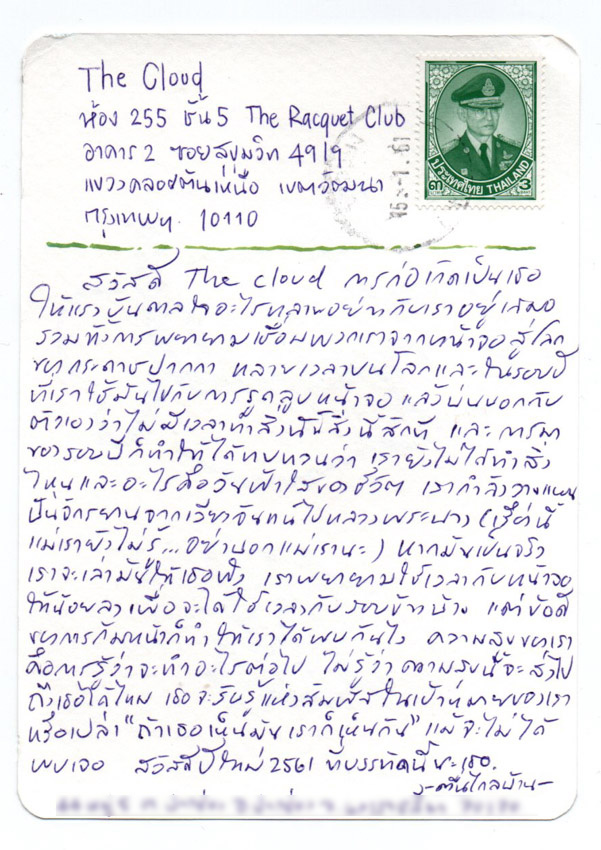 The Cloud
ห้อง 255 ชั้น 5 The Racquet Club
อาคาร 2 ซอยสุขุมวิท 49/9
แขวงคลองตันเหนือ เขตวัฒนา
กรุงเทพฯ 10110
ประเทศไทย THAILAND
๓ 3
15.-1.61
สวัสดี The cloud การก่อเกิดเป็นเธอ
ให้แรงบันดาลใจอะไรหลายอย่างกับเราอยู่เสมอ
รวมทั้งการพยายามเชื่อมพวกเราจากหน้าจอสู่โลก
ของกระดาษปากกา หลายเวลาบนโลกและในรอบปี
ที่เราใช้มันไปกับการรูดลูบหน้าจอ แล้วบ่นบอกกับ
ตัวเองว่าไม่มีเวลาทำสิ่งนั้นสิ่งนี้สักที และการมา
ของรอบปีก็ทำให้ได้ทบทวนว่า เรายังไม่ได้ทำสิ่ง
ไหนและอะไรคือวันฟ้าใสของชีวิต เรากำลังวางแผน
ปั่นจักรยานจากเวียงจันทน์ไปหลวงพระบาง (เรื่องนี้
แม่เรายังไม่รู้...อย่าบอกแม่เรานะ) หากมันเป็นจริง
เราจะเล่ามันให้เธอฟัง เราพยายามใช้เวลากับหน้าจอ
ให้น้อยลงเพื่อจะได้ใช้เวลากับรอบข้างบ้าง แต่ข้อดี
ของการก้มหน้าก็ทำให้เราได้พบกันไง ความสุขของเรา
คือการรู้ว่าจะทำอะไรต่อไป ไม่รู้ว่าความสุขนี้จะส่งไป
ถึงเธอได้ไหม เธอจะรับรู้แห่งสัมผัสในเป้าหมายของเรา
หรือเปล่า "ถ้าเธอเห็นมันเราก็เห็นกัน" แม้จะไม่ได้
พบเจอ สวัสดีปีใหม่ 2561 ที่บรรทัดนี้นะเธอ.
ไกลบ้าน-